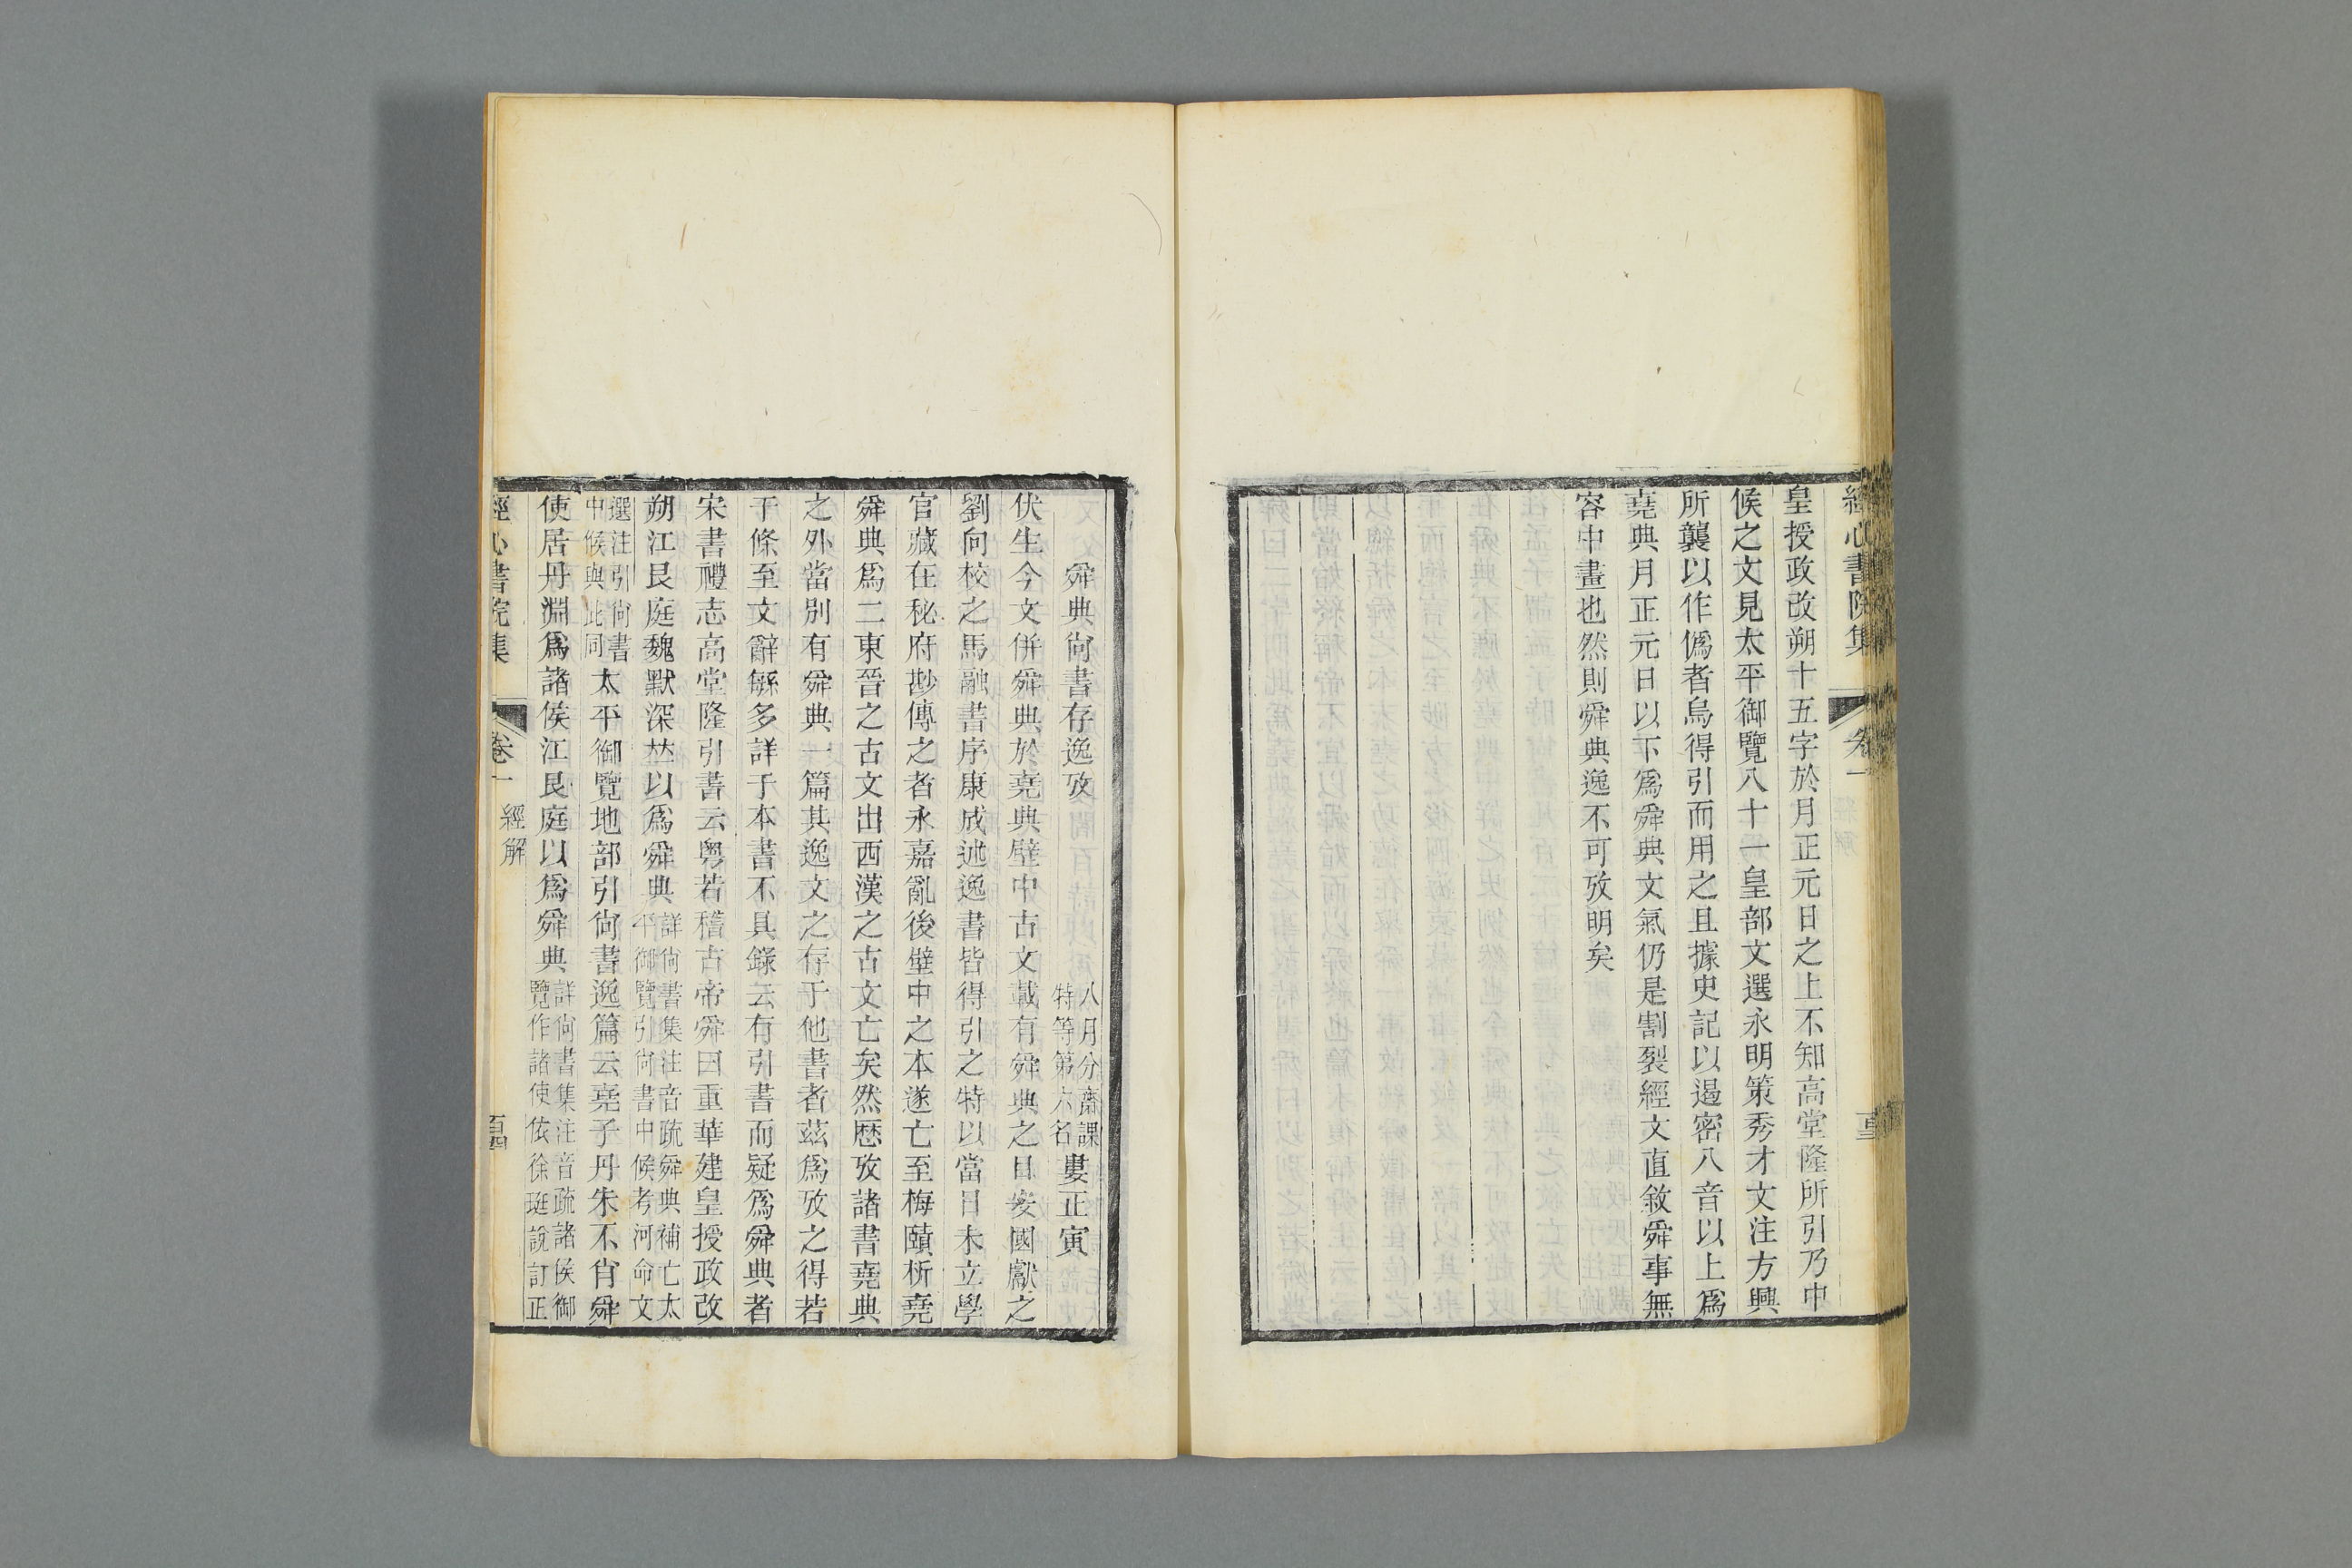 經心書院集
卷一
皇授政改朔十五字於月正元日之上不知高堂隆所引乃中
候之文見太平御覽八十一皇部文選永明策秀才文注方興
所襲以作僞者烏得引而用之且據史記以遏密八音以上爲
堯典月正元日以下爲舜典文氣仍是割裂經文直敘舜事無
容中畫也然則舜典逸不可攷明矣
舜典尙書存逸攷
八月分齋課
特等第六名
婁正寅
伏生今文併舜典於堯典壁中古文載有舜典之目安國獻之
劉向校之馬融書序康成述逸書皆得引之特以當日未立學
官藏在秘府尠傳之者永嘉亂後壁中之本遂亡至梅頤析堯
舜典爲二東晉之古文出西漢之古文亡矣然厯攷諸書堯典
之外當別有舜典一篇其逸文之存于他書者茲爲攷之得若
干條至文辭緐多詳于本書不具錄云有引書而疑爲舜典者
宋書禮志高堂隆引書云粵若稽古帝舜曰重華建皇授政改
朔江艮庭魏默深竝以爲舜典
詳尙書集注音疏舜典補亡太
平御覽引尙書中候考河命文
選注引尙書
中候與此同
太平御覽地部引尙書逸篇云堯子丹朱不肖舜
使居丹淵爲諸侯江艮庭以爲舜典
詳尙書集注音疏諸侯御
覽作諸使依徐珽說訂正
經心書院集
卷一
經解
百四